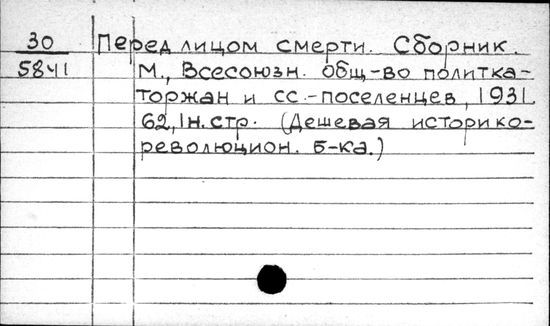 30 Перед лицом смерти. Сборник.
5841 М., Всесоюзн. общ-во политка-
торжан и сс.-поселенцев, 1931.
62, 1 н. стр. (Дешевая историко-
революцион. б-ка.)